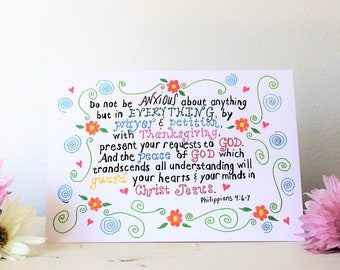 Do not be ANXIOUS about anything
but in EVERYTHING, by
prayer & petition,
with Thanksgiving,
present your requests to GOD.
And the peace of GOD which
trandscends all understanding will
guard your hearts & your minds in
Christ Jesus.
Philippians 4:6-7